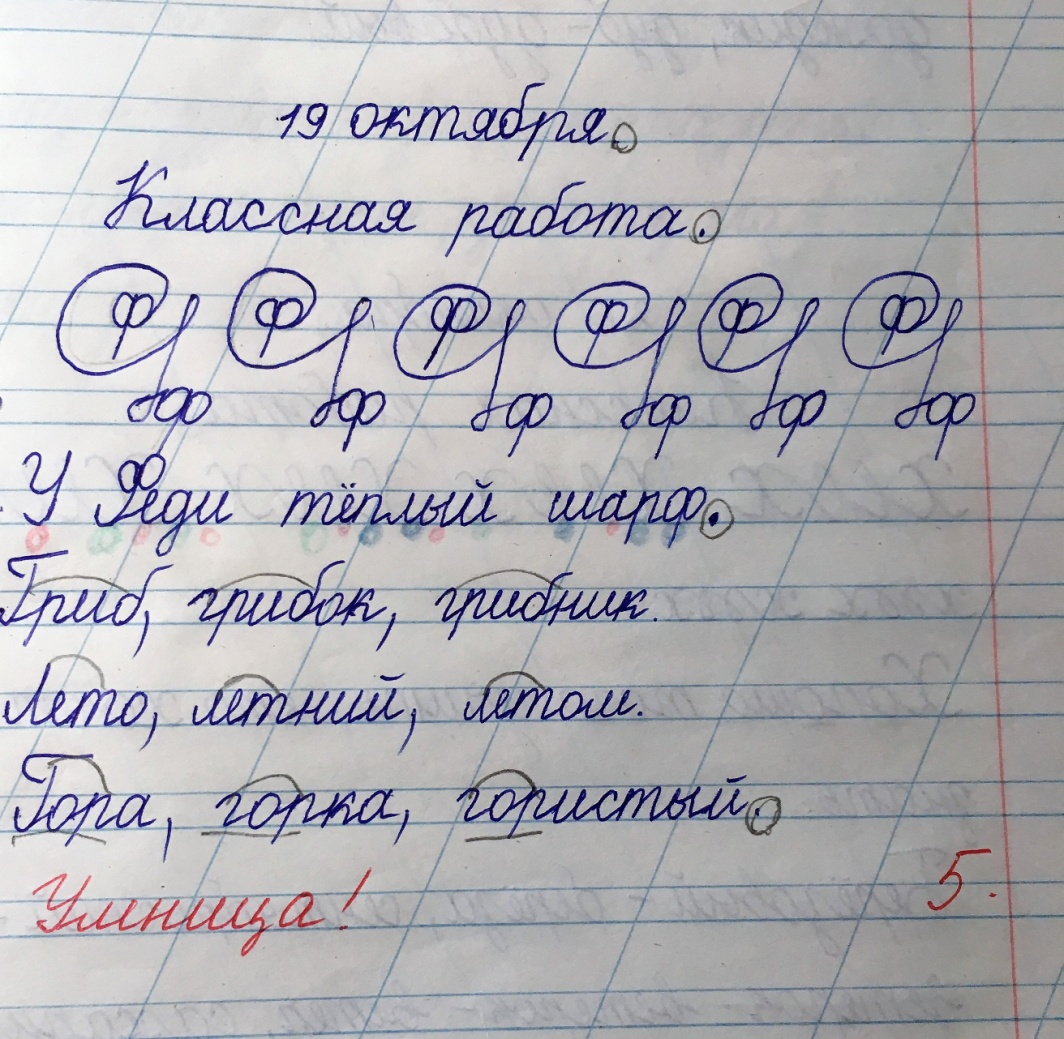 19 октября.
Классная работа.
Ф Ф Ф Ф Ф Ф
ф ф ф ф ф ф
У Феди тёплый шарф.
Гриб, грибок, грибник.
Лето, летний, летом.
Гора, горка, гористый.
Умница! 5.